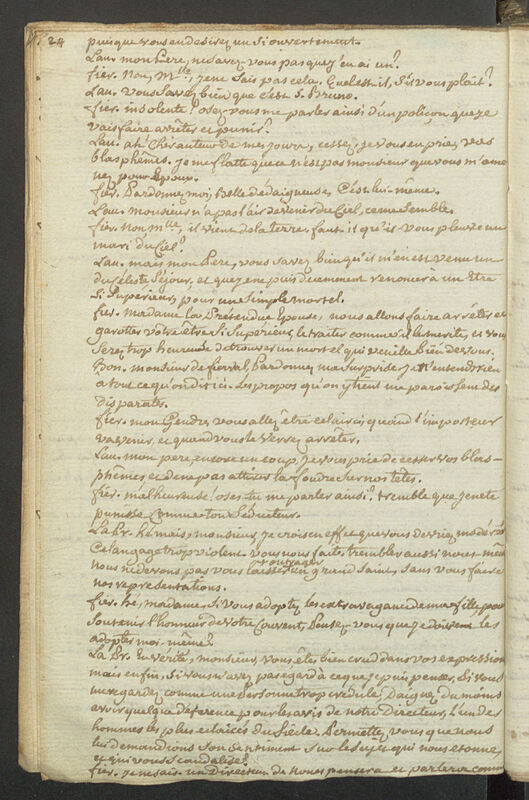 24
puisque vous en desirez un si ouvertement.
Lau. mon Pere, ne savez vous pas que j'en ai un?
fier. Non, Mlle, je ne sais pas cela. Quel est-il, s'il vous plait?
Lau. vous savez bien que c'est S. Bruno.
fier. insolente! osez-vous me parler ainsi d'un poliçon que je
vais faire arrêter et punir?
Lau. ah! Cher auteur de mes jours, cessez, je vous en prie, vos
blasphêmes. je me flatte que ce n'est pas monsieur que vous m'ame
nez pour Epoux.
fier. Pardonnez moi, belle dédaigneuse, C'est lui-même.
Lau. monsieur n'a pas l'air de venir du Ciel, ce me semble.
fier. Non Mlle, il vient de la terre. faut-il qu'il vous pleuve un
mari du Ciel?
Lau. mais mon Pere, vous savez bien qu'il m'en est venu un
du Céleste Séjour, et que je ne puis décemment renoncer à un Etre
si Supérieur, pour un simple mortel.
fier. Madame la Prétendue Epouse, nous allons faire arrêter et
garotter votre être si Supérieur, le traiter comme il le merite, et vous
serez trop heureuse de trouver un mortel qui veuille bien de vous.
Bon. monsieur de fierval, Pardonnez ma surprise, je n'entends rien
a tout ce qu'on dit ici. Les propos qu'on y tient me paroissent des
disparates.
fier. mon Gendre, vous allez être éclairci, quand l'imposteur
va venir, et quand vous le verrez arrêter.
Lau. mon pere, encore un coup, je vous prie de cesser vos blas-
phêmes, et de ne pas attirer la foudre sur nos têtes.
fier. malheureuse! oses-tu me parler ainsi? tremble que je ne te
punisse comme ton Séducteur.
La Pr. hé mais, monsieur, je crois en effet que vous devriez modérer
Ce langage trop violent. vous nous faites trembler aussi nous-même
nous ne devons pas vous laisser outrager un grand Saint, sans vous faire
nos représentations.
fier. hé, madame, si vous adoptez les extravagances de ma fille pour
soutenir l'honneur de votre Couvent, Pensez-vous que je doive les
adopter moi-même?
La Pr. En vérité, monsieur, vous êtes bien crud dans vos expressions
mais enfin, si vous n'avez pas egard à ce que je puis penser, si vous
me regardez comme une personne trop crédule, Daignez du moins
avoir quelque déférence pour les avis de notre Directeur, l'un des
hommes les plus eclairés du Siécle. Permettez-vous que nous
lui demandions son sentiment sur le sujet qui nous etonne
et qui vous scandalise?
fier. je ne sais un Directeur de Nones pensera et parlera comme